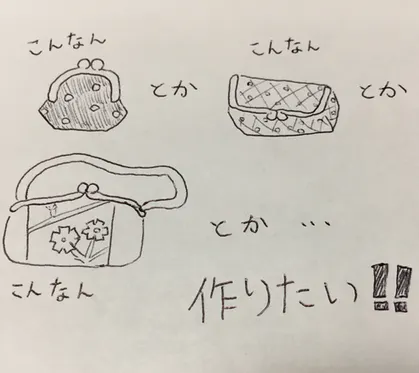 こんなん
こんなん
とか
とか
とか…
こんなん
作りたい!!